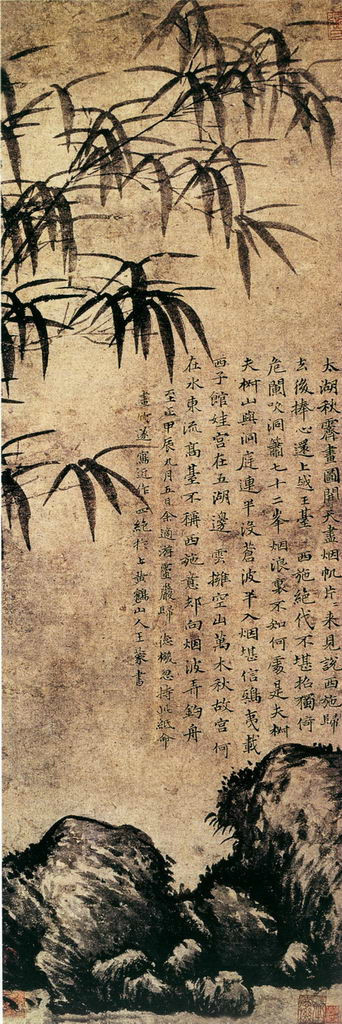 太湖秋霽畫圖開天盡烟帆片〻来見說西施歸
去後捧心還上越王臺 西施絶代不堪招獨倚
危闌吹洞簫七十二峯烟浪裏不知何處是夫椒
夫椒山與洞庭連半沒蒼波半入烟堪信鴟夷載
西子館娃宮在五湖邊 雲擁空山萬木秋故宮何
在水東流高臺不稱西施意却向烟波弄釣舟
至正甲辰九月五日余適游靈巖歸 德機忽持此紙命
畫竹遂寫近作四絶於上黄鶴山人王蒙書